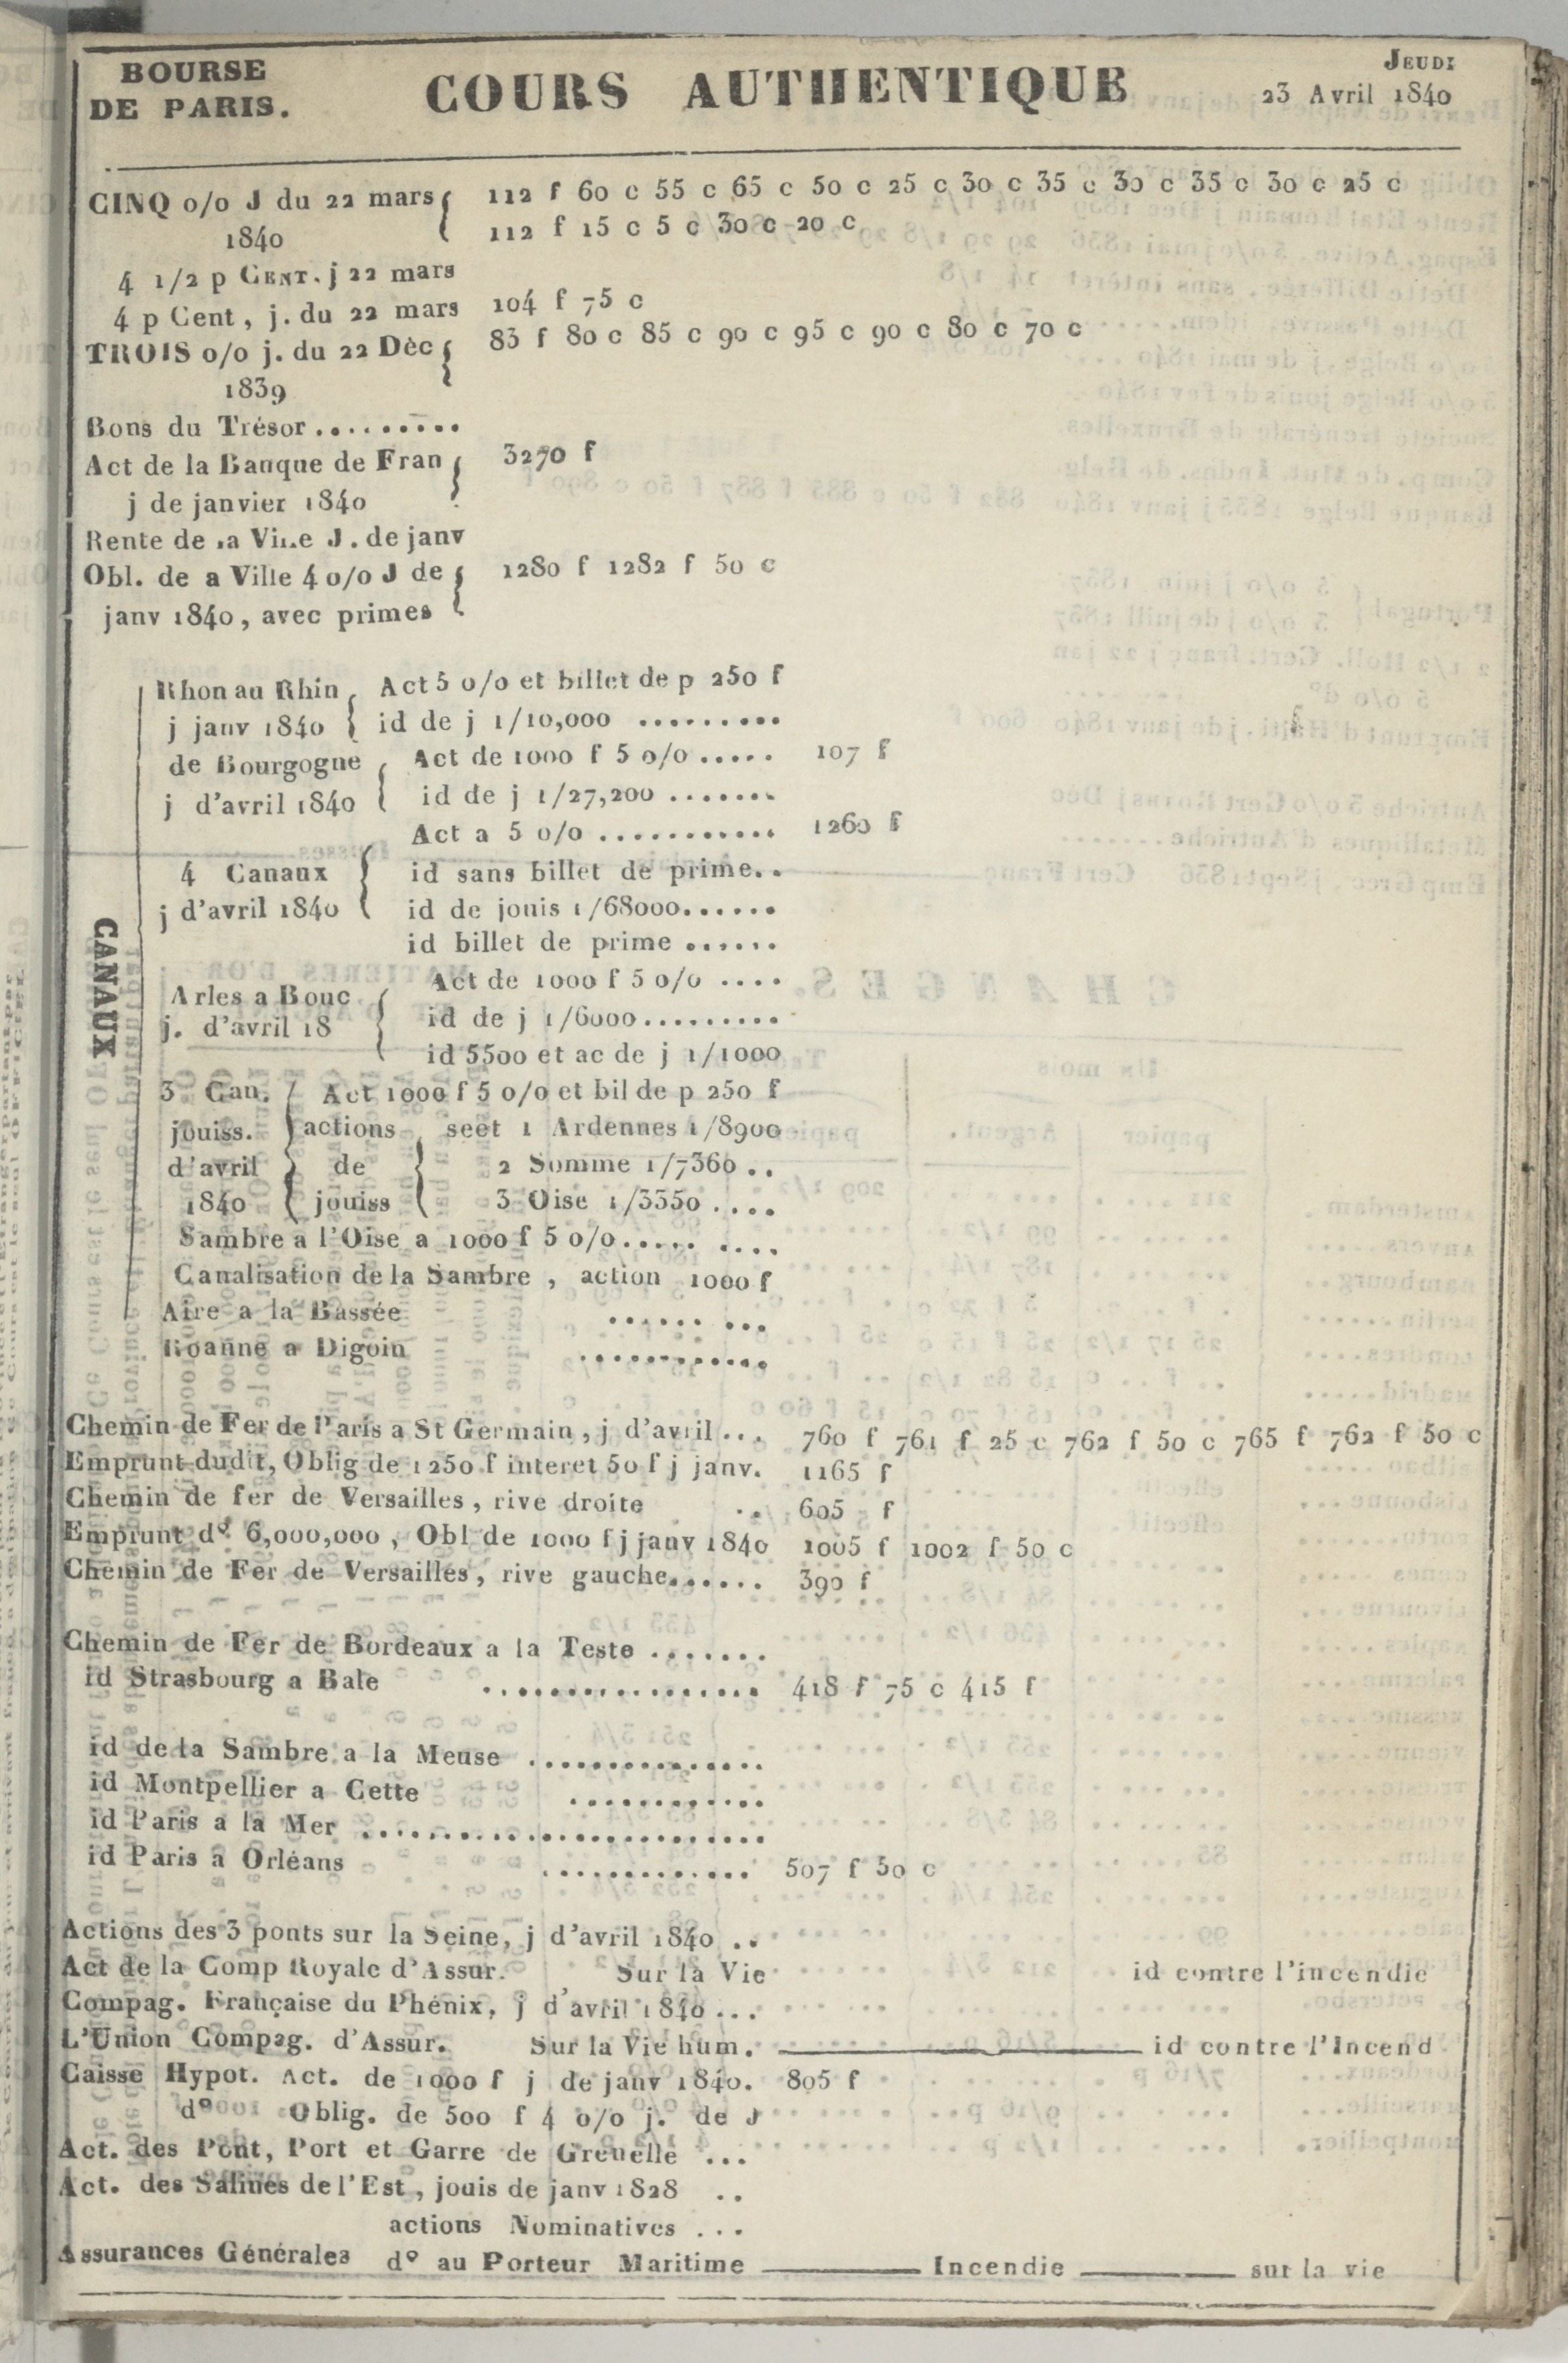 BOURSE
DE PARIS.
COURS AUTHENTIQUE
JEUDI
23 Avril 1840
CINQ o/o J du 22 mars 112 f 60 c 55 c 65 c 50 c 25 c 30 c 35 c 30 c 35 c 30 c 25 c
1840 112 f 15 c 5 c 30 c 20 c
4 1/2 p CENT. j 22 mars
4 p Cent, j. du 22 mars 104 f 75 c
TROIS o/o j. du 22 Dèc 83 f 80 c 85 c 90 c 95 c 90 c 80 c 70 c
1839
Bons du Trésor.........
Act de la Banque de Fran 3270 f
j de janvier 1840
Rente de la Ville J. de janv
Obl. de a Ville 4 o/o J de 1280 f 1282 f 50 c
janv 1840, avec primes
CANAUX
Rhon au Rhin Act 5 o/o et billet de p 250 f
j janv 1840 id de j 1/10,000 .........
de Bourgogne Act de 1000 f 5 o/o ..... 107 f
j d'avril 1840 id de j 1/27,200 .......
Act a 5 o/o ........... 1260 f
4 Canaux id sans billet de prime..
j d'avril 1840 id de jouis 1/68000......
id billet de prime ......
Arles a Bouc Act de 1000 f 5 o/o ....
j. d'avril 18 id de j 1/6000.........
id 5500 et ac de j 1/1000
3 Can. Act 1000 f 5 o/o et bil de p 250 f
jouiss. actions seet 1 Ardennes 1/8900
d'avril de 2 Somme 1/7360 ..
1840 jouiss 3 Oise 1/3350 ....
Sambre a l'Oise a 1000 f 5 o/o..... ....
Canalisation de la Sambre, action 1000 f
Aire a la Bassée ...... ...
Roanne a Digoin ............
Chemin de Fer de Paris a St Germain, j d'avril ... 760 f 761 f 25 c 762 f 50 c 765 f 762 f 50 c
Emprunt dudit, Oblig de 1250 f interet 50 f j janv. 1165 f
Chemin de fer de Versailles, rive droite .. 605 f
Emprunt d° 6,000,000, Obl de 1000 f j janv 1840 1005 f 1002 f 50 c
Chemin de Fer de Versailles, rive gauche...... 390 f
Chemin de Fer de Bordeaux a la Teste .......
id Strasbourg a Bale ................. 418 f 75 c 415 f
id de la Sambre a la Meuse ...............
id Montpellier a Cette ............
id Paris a la Mer .........................
id Paris a Orléans ............. 507 f 50 c
Actions des 3 ponts sur la Seine, j d'avril 1840 ..
Act de la Comp Royale d'Assur. Sur la Vie id contre l'incendie
Compag. Française du Phénix, j d'avril 1840 ...
L'Union Compag. d'Assur. Sur la Vie hum. id contre l'Incend
Caisse Hypot. Act. de 1000 f j de janv 1840. 805 f
d° Oblig. de 500 f 4 o/o j. de J
Act. des Pont, Port et Garre de Grenelle ...
Act. des Salines de l'Est, jouis de janv 1828 ..
actions Nominatives ...
Assurances Générales d° au Porteur Maritime Incendie sur la vie